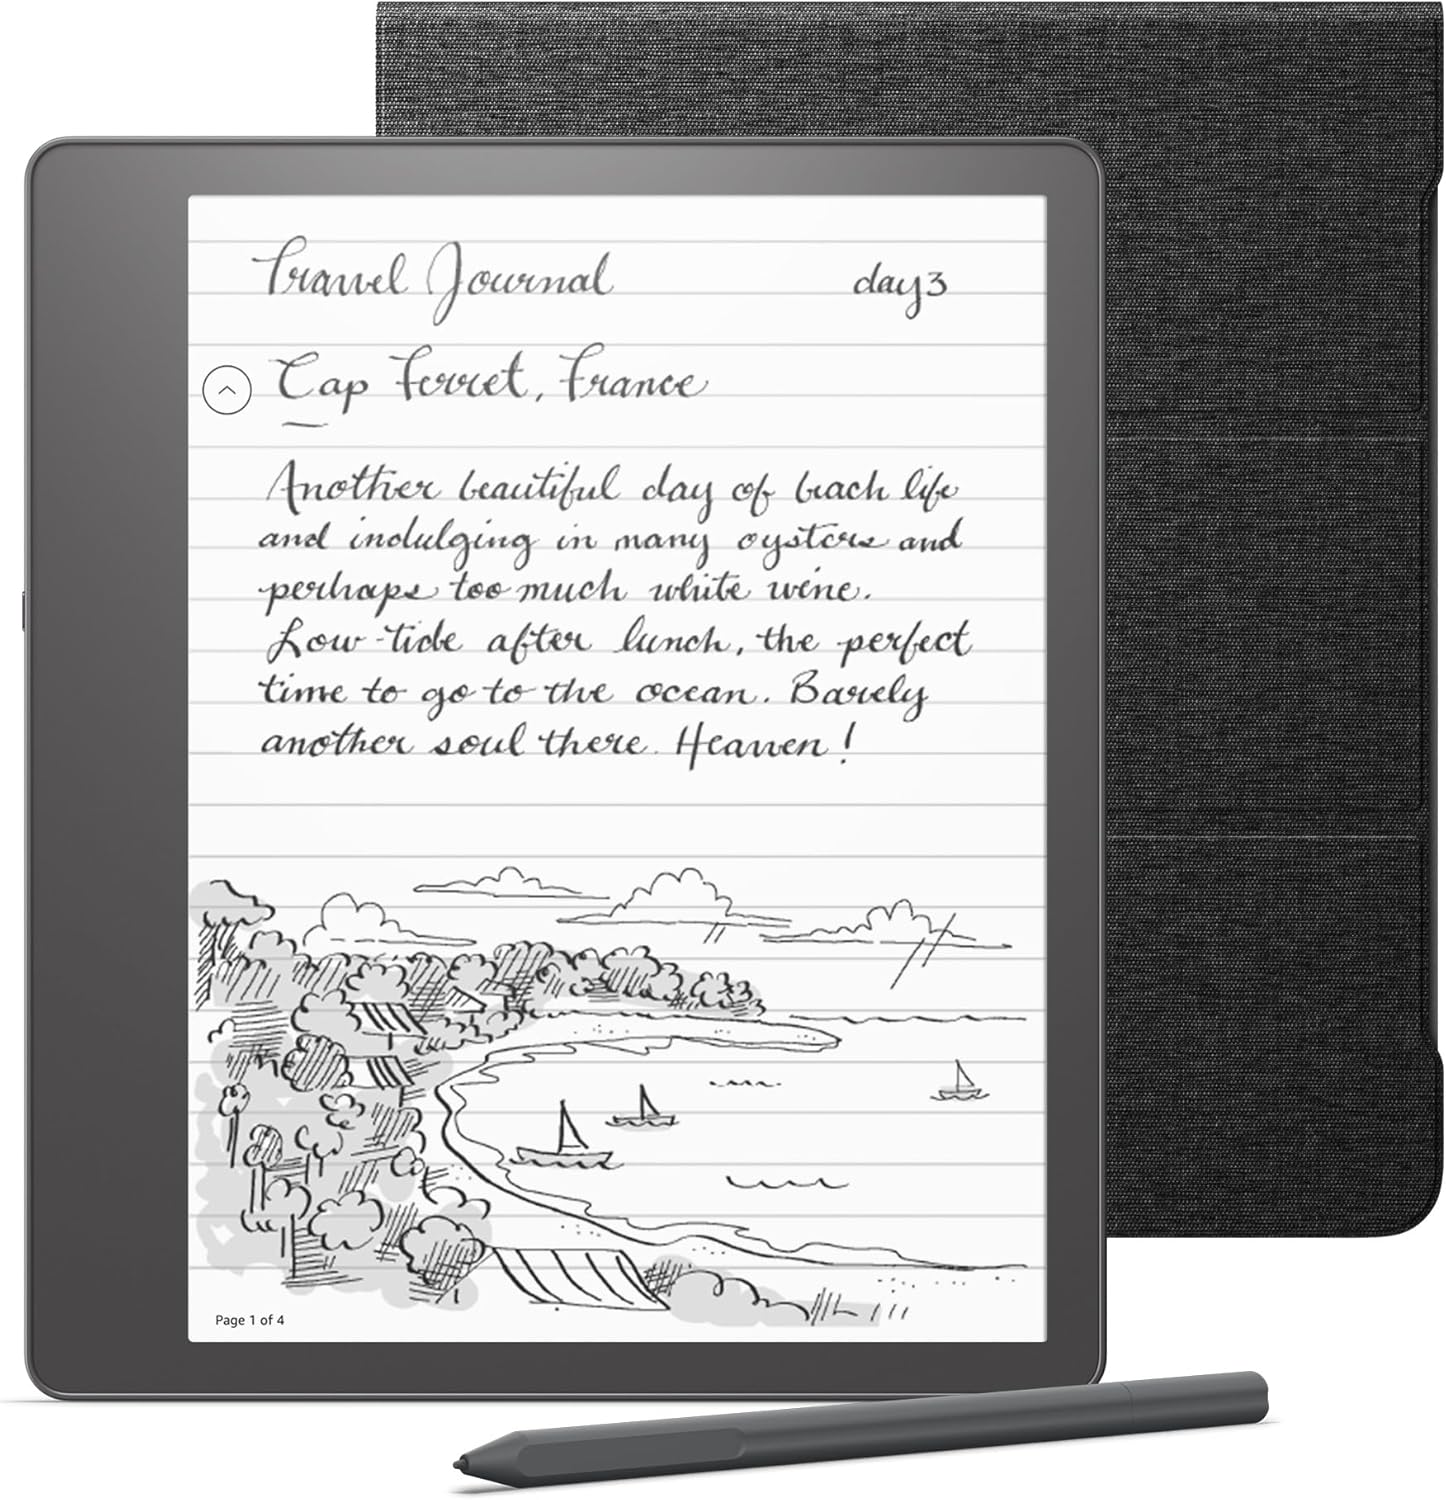 Travel Journal day 3
Cap Ferret, France
Another beautiful day of beach life
and indulging in many oysters and
perhaps too much white wine.
Low-tide after lunch, the perfect
time to go to the ocean. Barely
another soul there. Heaven!
Page 1 of 4